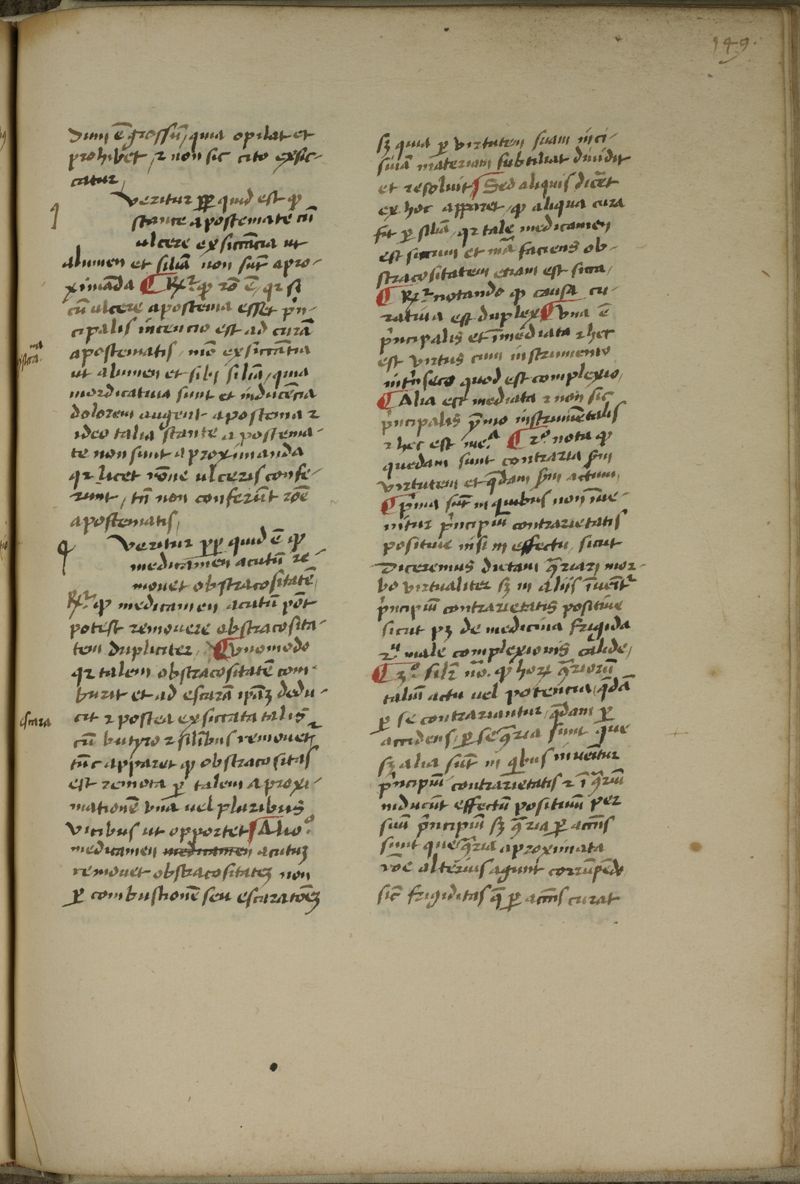 149.
dum ē grossū, quia opilat et
prohibet, ⁊ non sic cito exsic-
catur,
q
Veritur ꝓpꝑ quid est ꝙ
stante apostemate cū
ulcere exsiccācia ut
alumen et siliā non sūt apro-
ximāda ¶ Rꝫ ꝙ rō ē, qꝛ si
cū ulcere apostema esset prin-
cipalis intencio est ad curā
apostematis, mō exsiccātia
ut alumen et sibi siliā, quia
mordicatiua sunt et inducēcia
dolorem augent apostema ⁊
ideo talia stante apostema-
te non sunt aproximanda
qꝛ licet rōne ulceris confe-
runt, tn̄ non conferūt rōē
apostematis,
q
Veritur ꝓpꝑ quid ē ꝙ
medicamen acutū re-
mouet obstracositatē
Rꝫ ꝙ medicamen acutū pōt
potest remouere obstracosita-
tem dupliciter, ¶ Vnomodo
qꝛ talem obstracositatē com-
burit et ad escarā ip̄aꝫ dedu-
escara
cit ⁊ postea exsiccata talis
cū butyro ⁊ silibus remouetꝛ
tūc apparet ꝙ obstracositas
est remota ꝑ talem aproxi-
mationē vnā uel pluribus
vicibus ut opportet ¶ Alioº
medicamen medicamen acutuꝫ
remouet obstracositateꝫ non
ꝑ combustionē seu escaratōeꝫ
sꝫ quia ꝑ virtutem suam inci-
siuā materiam subtiliat diuidit
et resoluit ¶ Sed aliquis dicēt
ex hoc apparet, ꝙ aliqua cura
fit ꝑ siliā, qꝛ tale medicamen
est siccum et mā faciens ob-
stracositatem etiam est sicca,
¶ Rꝫ notando ꝙ causa cu-
ratiua est duplex ¶ Vna ē
prīncipalis et īmediata ⁊ hec
est virtus cum instrumento
intrīseco quod est complexio,
¶ Alia est mediata ⁊ non sic
prīncipalis prīmo instrumētalis
⁊ hec est meª ¶ 2º nota ꝙ
quedam sunt contraria ẜm
virtutem et qdam ẜm actum,
¶ Prima sūt in quibus non inue-
nitur prīncipiū contrarietatis
positiue nisi in effectu, sicut
Diceremus dietam ꝯrariari mor-
bo virtualiter sꝫ in aliis īuenitꝛ
prīncipiū contrarietatis positiue
sicut pꝫ de medicina frigida
male complexionis calide,
¶ 3º silr nō. ꝙ horꝝ ꝯrariorū
talium actu uel potencia, qdā
ꝑ se contrariantur, qdam ꝑ
accidens, ꝑ se ꝯria sunt que
sꝫ alia sūt in qibus inuenitur
prīncipiū contrarietatis ⁊ ī ꝯriū
inducūt effectū positiuū per
suū prīncipiū sꝫ ꝯria ꝑ accn̄s
sunt que ꝯria aproximata
rōe alterius agunt corrūpēdo
sic̄ frigiditas q̄ ꝑ accn̄s curat